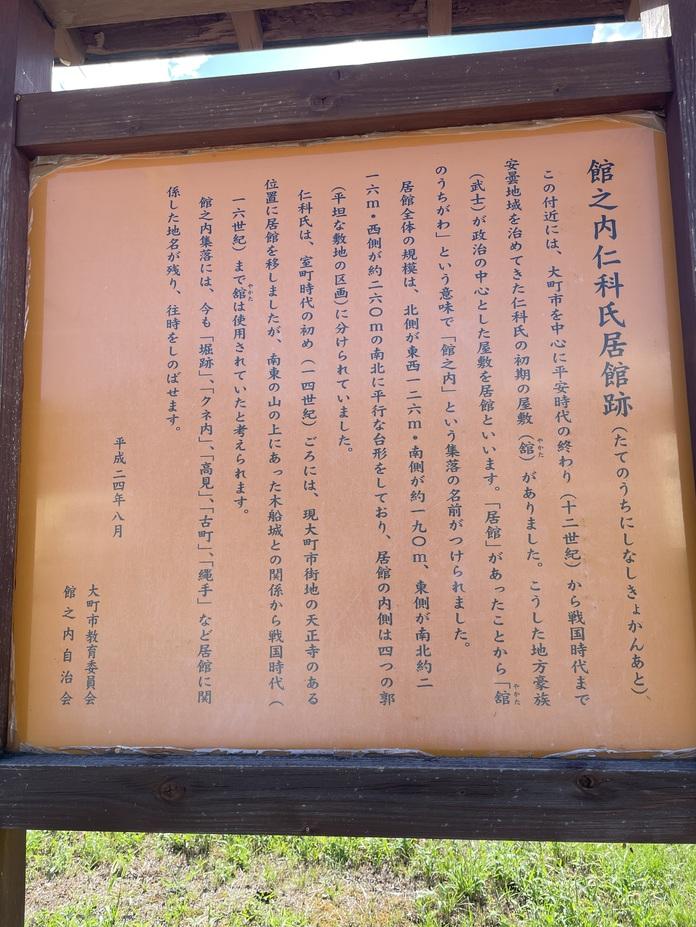 館之内仁科氏居館跡（たてのうちにしなしきょかんあと）
この付近には、大町市を中心に平安時代の終わり（十二世紀）から戦国時代まで
安曇地域を治めてきた仁科氏の初期の屋敷（舘やかた）がありました。こうした地方豪族
（武士）が政治の中心とした屋敷を居館といいます。「居館」があったことから「舘やかた
のうちがわ」という意味で「館之内」という集落の名前がつけられました。
居館全体の規模は、北側が東西一二六ｍ・南側が約一九〇ｍ、東側が南北約二
一六ｍ・西側が約二六〇ｍの南北に平行な台形をしており、居館の内側は四つの郭
（平坦な敷地の区画）に分けられていました。
仁科氏は、室町時代の初め（一四世紀）ごろには、現大町市街地の天正寺のある
位置に居館を移しましたが、南東の山の上にあった木船城との関係から戦国時代（
一六世紀）まで舘やかたは使用されていたと考えられます。
館之内集落には、今も「堀跡」、「クネ内」、「高見」、「古町」、「縄手」など居館に関
係した地名が残り、往時をしのばせます。
平成二四年八月
大町市教育委員会
館之内自治会